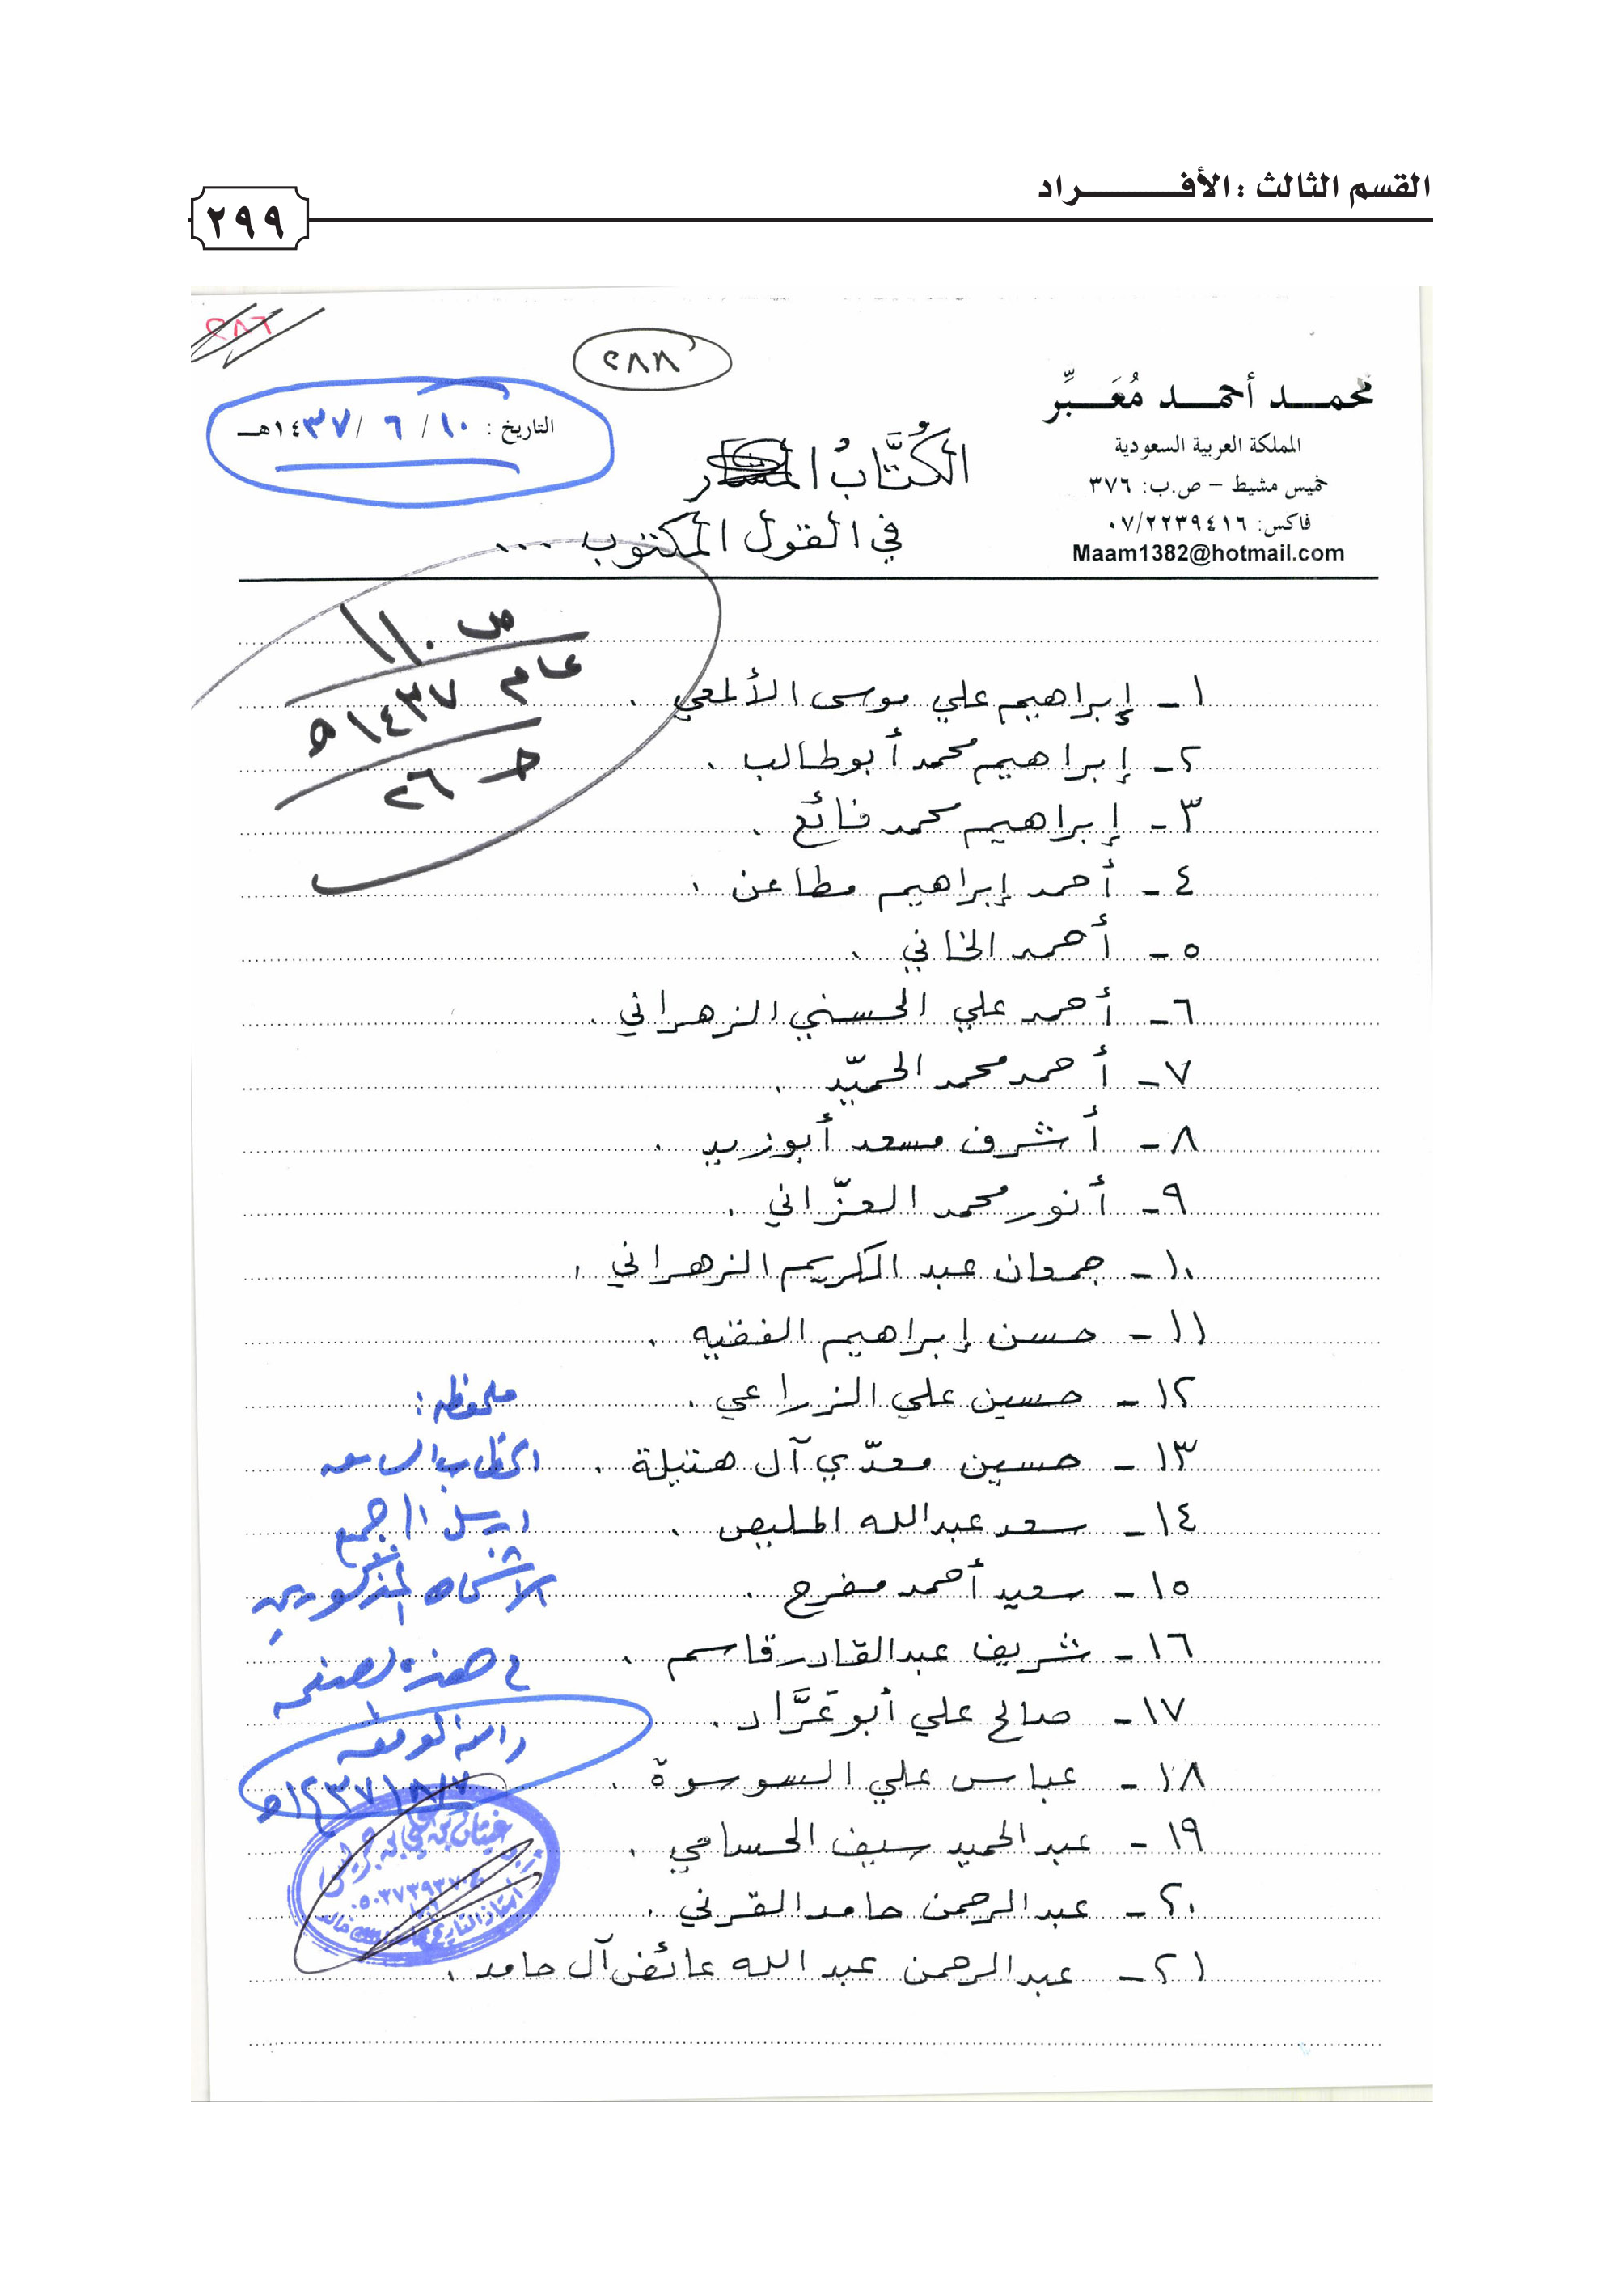 القسم الثالث : الأفـــراد
٢٩٩
٢٨٦
٢٨٨
محمـد أحمـد مُعَبِّر
المملكة العربية السعودية
خميس مشيط – ص.ب: ٣٧٦
فاكس: ٠٧/٢٢٣٩٤١٦
Maam1382@hotmail.com
التاريخ : ١٠ / ٦ / ١٤٣٧هـ
الكُتَّابُ
في القول المكتوب ...
ص ١١٠
عام ١٤٣٧هـ
حـ ٢٦
١- إبراهيم علي موسى الألمعي .
٢- إبراهيم محمد أبو طالب .
٣- إبراهيم محمد فائع .
٤- أحمد إبراهيم مطاعن .
٥- أحمد الخاني .
٦- أحمد علي الحسني الزهراني .
٧- أحمد محمد الحميّد .
٨- أشرف مسعد أبو زيد .
٩- أنور محمد العزّاني .
١٠- جمعان عبد الكريم الزهراني .
١١- حسن إبراهيم الفقيه .
١٢- حسين علي الزراعي .
١٣- حسين معدّي آل هتيلة .
١٤- سعد عبدالله المليص .
١٥- سعيد أحمد مفرح .
١٦- شريف عبدالقادر قاسم .
١٧- صالح علي أبو عَرَّاد .
١٨- عباس علي السوسوة .
١٩- عبد الحميد سيف الحسامي .
٢٠- عبدالرحمن حامد القرني .
٢١- عبدالرحمن عبد الله عائض آل حامد .
ملاحظة :
الخطاب السابق
أرسل إلى جميع
الأشخاص المذكورين
في هذه الصفحة